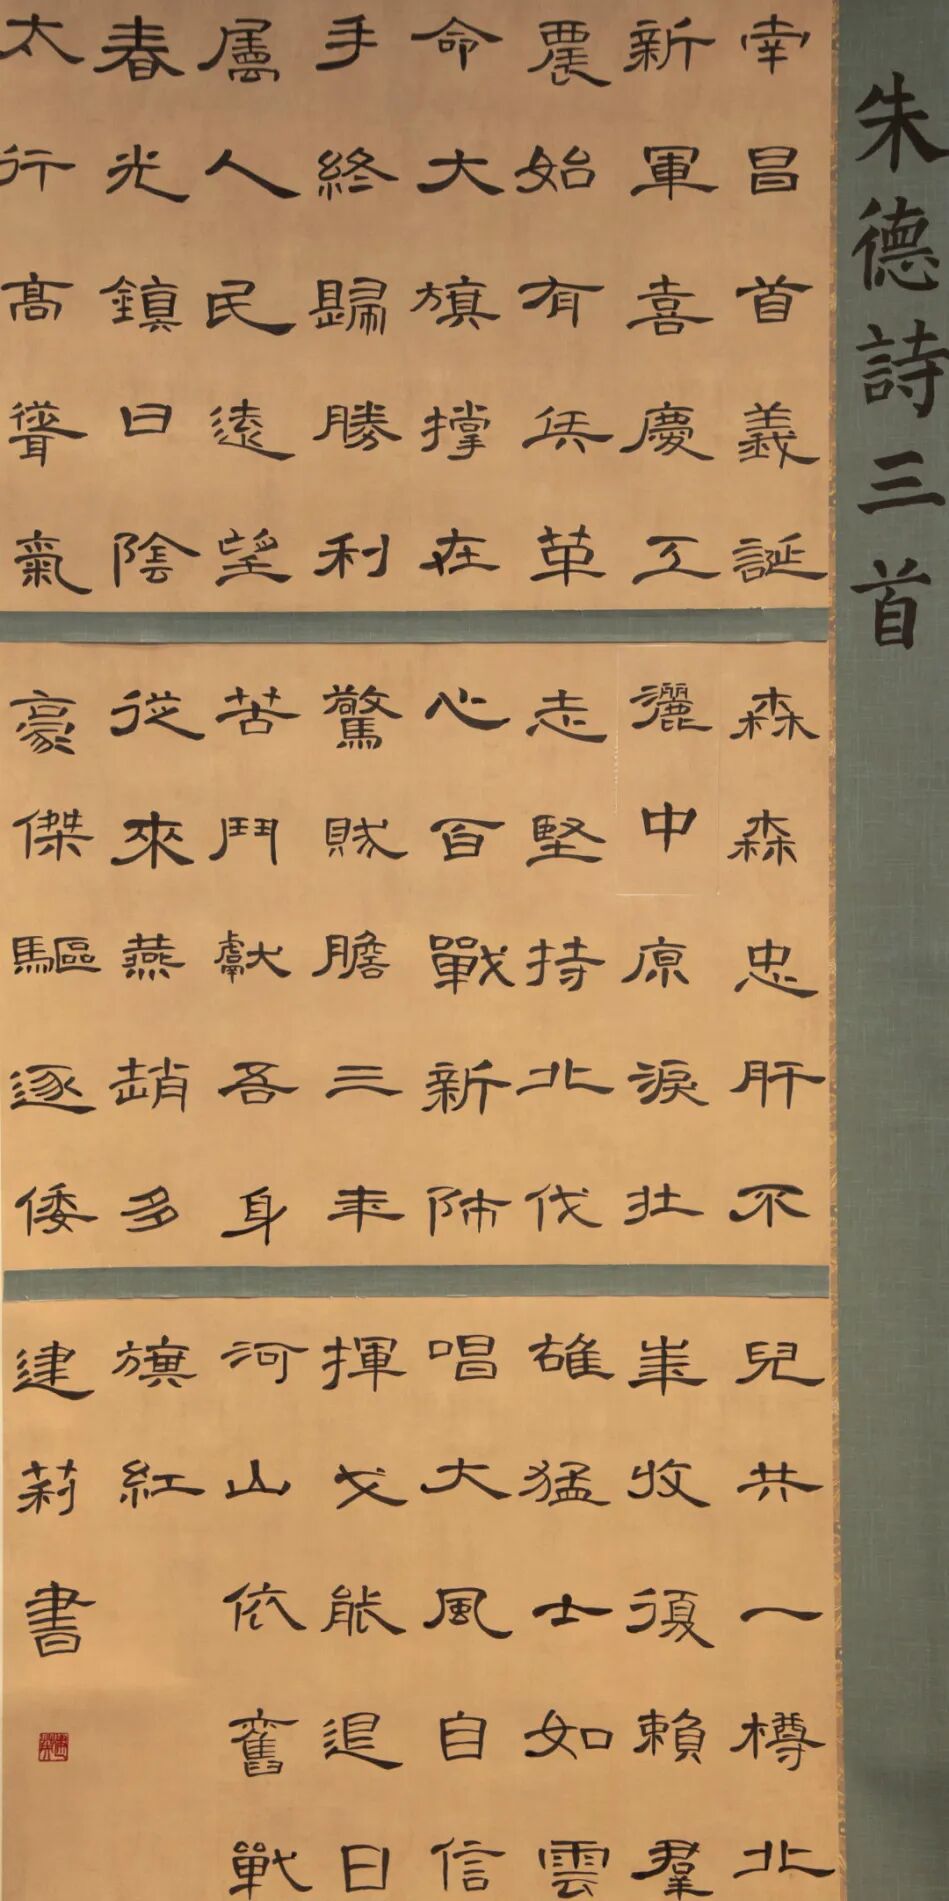 朱德詩三首
南昌首義誕
新軍喜慶工
農始有兵革
命大旗撑在
手終歸勝利
屬人民遠望
春光鎮日陰
太行高聳氣
森森忠肝不
灑中原淚壯
志堅持北伐
心百戰新師
驚賊膽三年
苦鬥獻吾身
從來燕趙多
豪傑驅逐倭
兒共一樽北
華收復賴羣
雄猛士如雲
唱大風自信
揮戈能退日
河山依舊戰
旗紅
建莉書